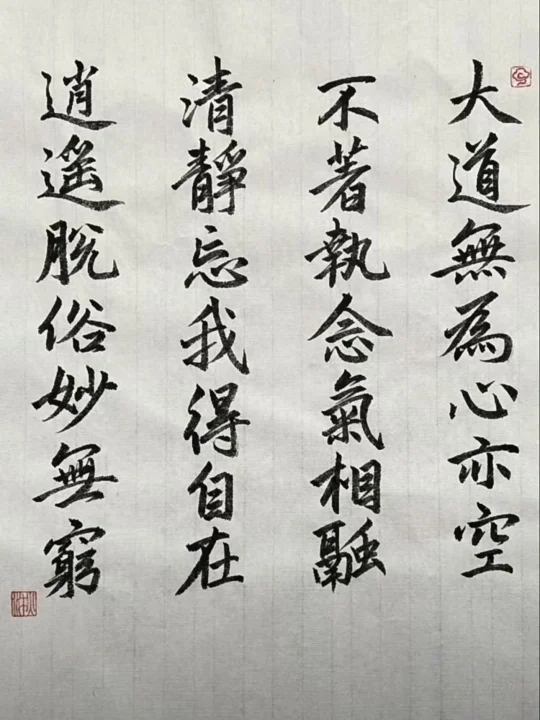 大道無為心亦空
不著執念氣相融
清靜忘我得自在
逍遙脫俗妙無窮